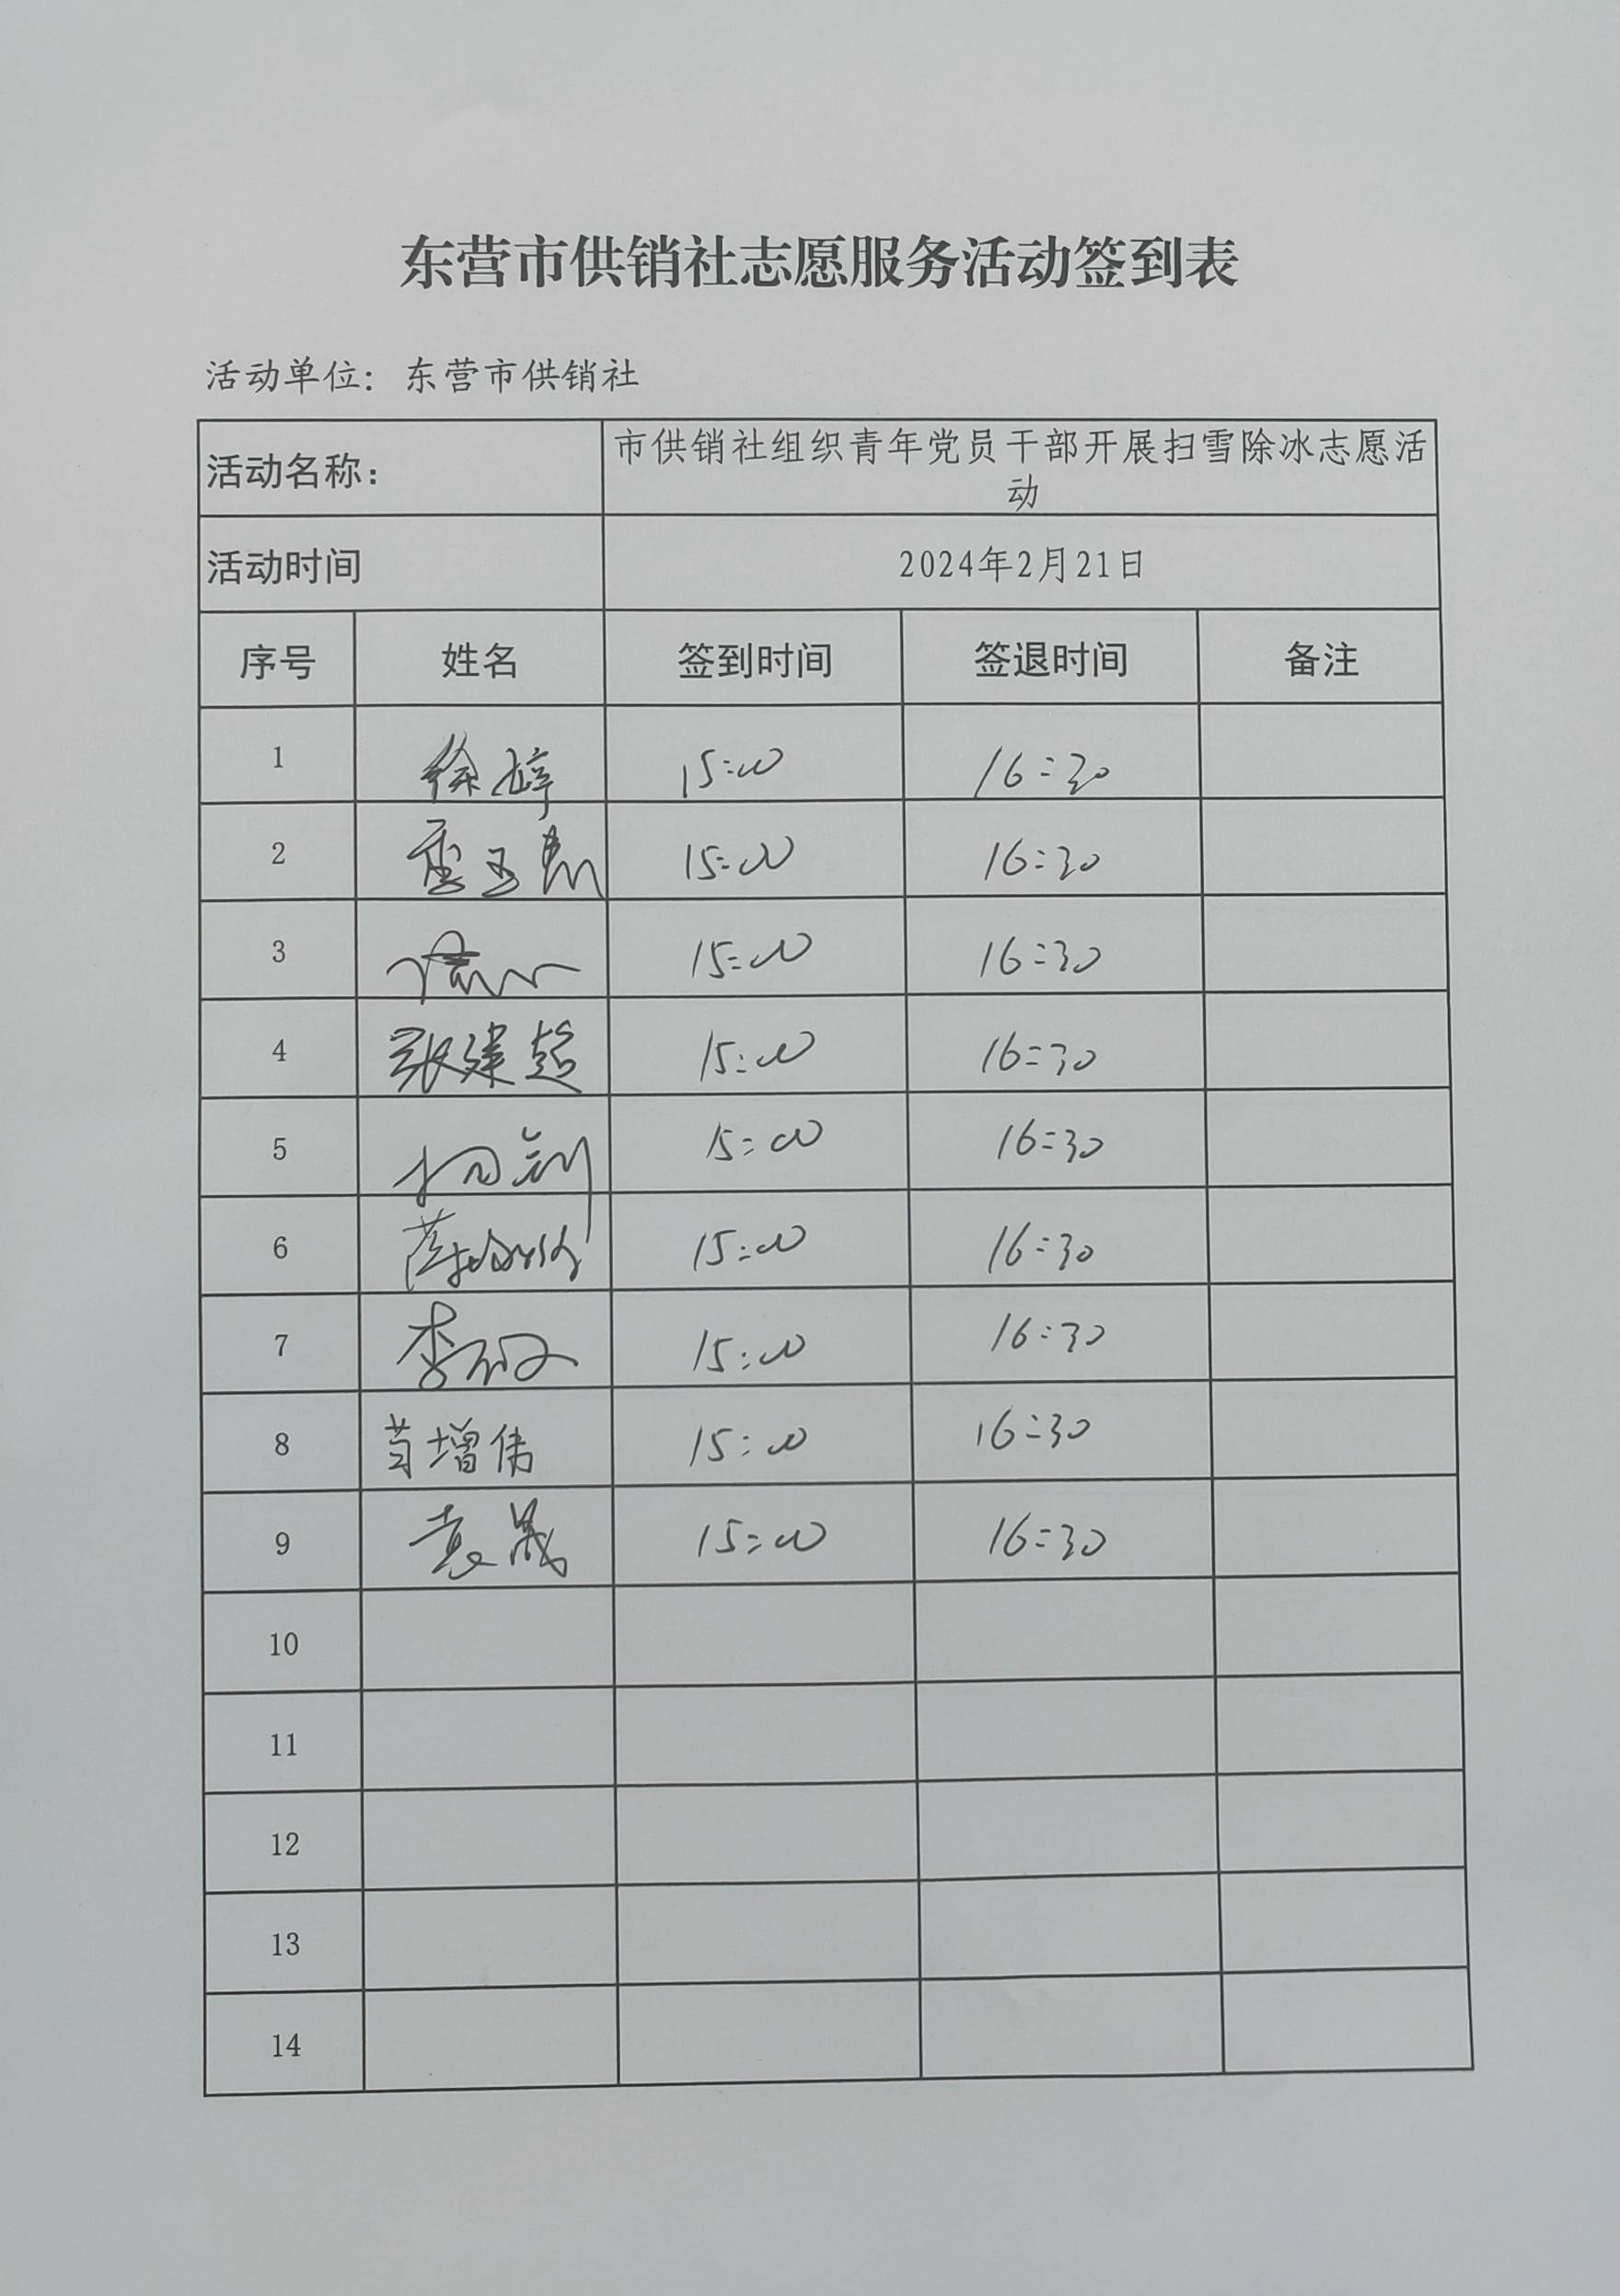 东营市供销社志愿服务活动签到表
活动单位：东营市供销社
活动名称：
市供销社组织青年党员干部开展扫雪除冰志愿活
动
活动时间
2024年2月21日
序号 姓名 签到时间 签退时间 备注
1 徐婷 15:00 16:30
2 15:00 16:30
3 15:00 16:30
4 张建超 15:00 16:30
5 杨钊 15:00 16:30
6 15:00 16:30
7 15:00 16:30
8 苟增伟 15:00 16:30
9 袁晟 15:00 16:30
10
11
12
13
14